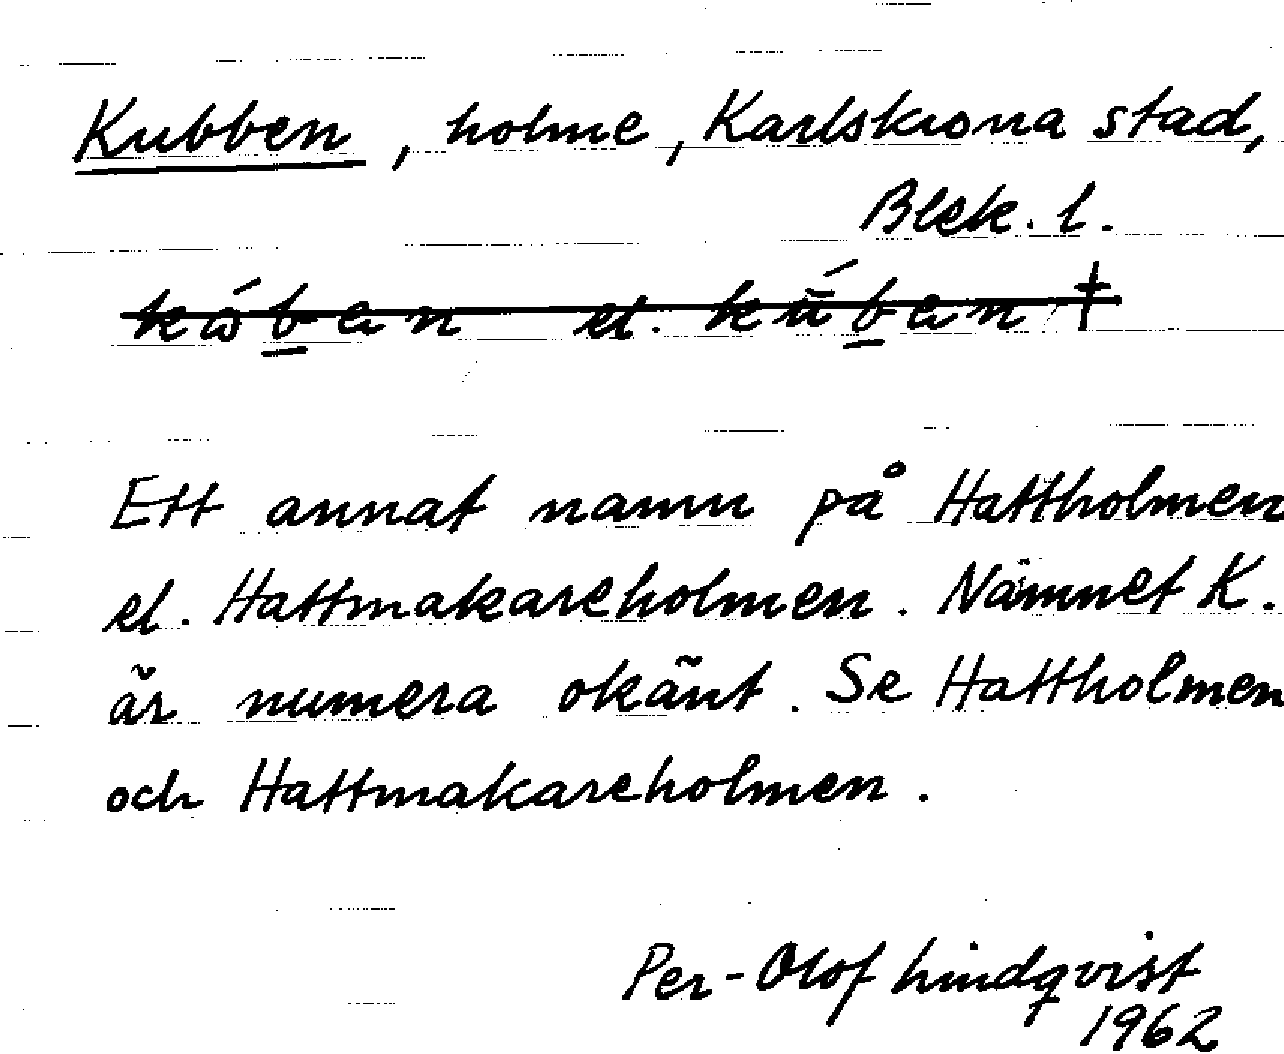 Kubben, holme, Karlskrona stad,
Blek. l.
el.
Ett annat namn på Hattholmen
el. Hattmakareholmen. Namnet K.
är numera okänt. Se Hattholmen
och Hattmakareholmen.
Per-Olof Lindqvist
1962